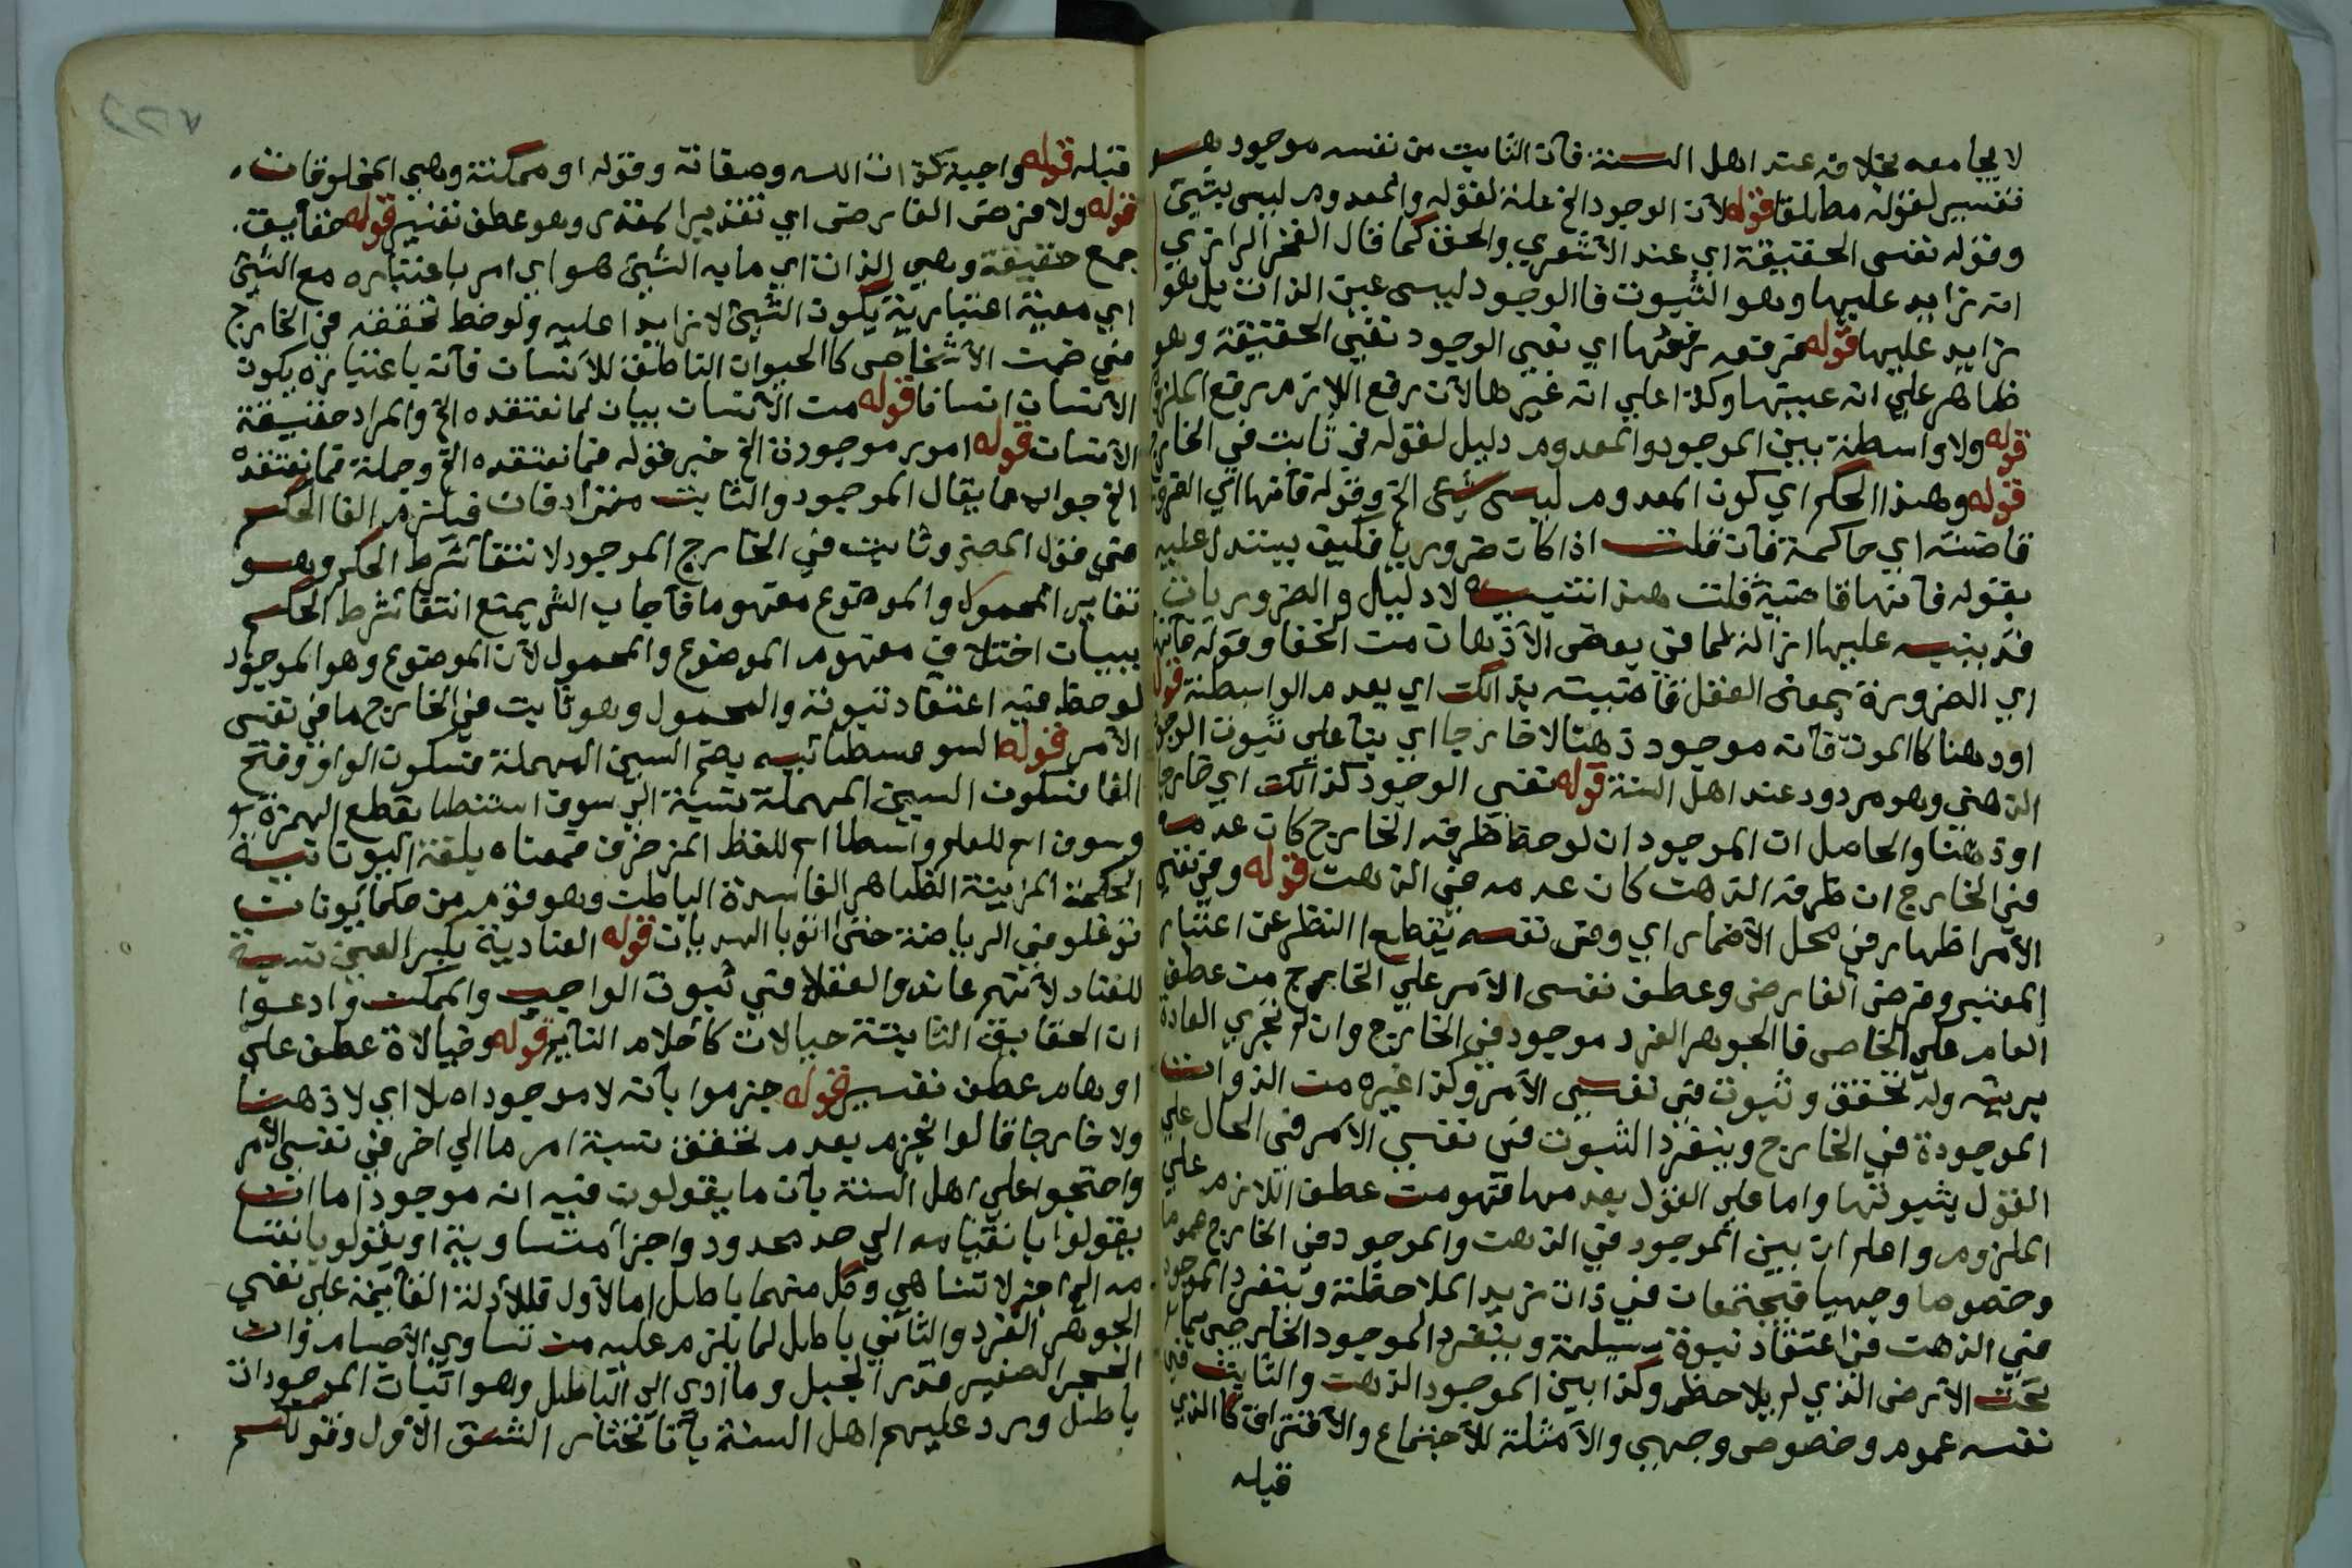 لا يجامعه بخلافه عند اهل السنة فان الثابت من نفسه موجود هو
تفسير لقوله مطلقا قوله لان الوجود الخ علة لقوله والمعدوم ليس بشئ
وقوله نفس الحقيقة اي عند الأشعري والحق كما قال الفخر الرازي
انه زايد عليها وهو الثبوت فالوجود ليس عين الذات بل هو
زايد عليها قوله فرفعه رفعها اي نفي الوجود نفي الحقيقة وهو
ظاهر علي انه عينها وكذا علي انه غيرها لان رفع اللازم رفع الملزوم
قوله ولا واسطة بين الموجود والمعدوم دليل لقوله في ثابت في الخارج
قوله وهذا الحكم اي كون المعدوم ليس شئ الخ وقوله فانها اي الضرورة
قاضية اي حاكمة فان قلت اذا كان ضروريا فكيف يستدل عليه
بقوله فانها قاضية قلت هذا تنبيه لا دليل والضروريات
قد ينبه عليها ازالة لما في بعض الأذهان من الخفا وقوله فانها
اي الضرورة بمعنى العقل قاضية بذالك اي بعدم الواسطة قوله
اوذهنا كالموت فانه موجود ذهنا لا خارجا اي بنا علي ثبوت الوجود
الذهني وهو مردود عند اهل السنة قوله نفي الوجود كذالك اي خارجا
اوذهنا والحاصل ان الموجود ان لوحظ ظرفه الخارج كان عدمه
في الخارج ان ظرفه الذهن كان عدمه في الذهن قوله وفي نفس
الأمر اظهار في محل الأضمار اي وفي نفسه بقطع النظر عن اعتبار
المعتبر وفرض الفارض وعطف نفس الأمر علي الخارج من عطف
العام علي الخاص فالجوهر الفرد موجود في الخارج وان لم تجري العادة
برؤيته وله تحقق وثبوت في نفس الأمر وكذا غيره من الذوات
الموجودة في الخارج وينفرد الثبوت في نفس الأمر في الحال علي
القول بثبوتها واما علي القول بعدمها فهو من عطف اللازم علي
الملزوم واعلم ان بين الموجود في الذهن والموجود في الخارج عموما
وخصوصا وجهيا فيجتمعان في ذات زيد الملاحظة وينفرد الموجود
في الذهن في اعتقاد نبوة مسيلمة وينفرد الموجود الخارجي بما
تحت الأرض الذي لم يلاحظ وكذا بين الموجود الذهن والثابت في
نفسه عموم وخصوص وجهي والأمثلة للأجتماع والأفتراق كالذي
قبله
قبله قوله واجبة كذات الله وصفاته وقوله او ممكنة وهي المخلوقات
قوله ولا فرض الفارض اي تقدير المقدر وهو عطف تفسير قوله حقايق
جمع حقيقة وهي الذات اي ما به الشئ هو اي امر باعتباره مع الشئ
اي معية اعتبارية يكون الشئ لا زايدا عليه ولوحظ تحققه في الخارج
في ضمن الأشخاص كالحيوان الناطق للأنسان فانه باعتباره يكون
الأنسان انسانا قوله من الأنسان بيان لما نعتقده الخ والمراد حقيقة
الأنسان قوله امور موجودة الخ خبر قوله فما نعتقده الخ وجملة فما نعتقده
الخ جواب عما يقال الموجود والثابت مترادفان فيلزم الغا الحكم
في قول المصنف وثابت في الخارج الموجود لانتفا شرط الحكم وهو
تغاير المحمول والموضوع مفهوما فاجاب الش بمنع انتفا شرط الحكم
ببيان اختلاف مفهوم الموضوع والمحمول لان الموضوع وهو الموجود
لوحظ فيه اعتقاد ثبوته والمحمول وهو ثابت في الخارج ما في نفس
الأمر قوله السوفسطائيه بضم السين المهملة فسكون الواو وفتح
الفا فسكون السين المهملة نسبة الي سوف اسطا بقطع الهمزة
وسوف اسم للعلم واسطا اسم للفظ المزخرف فمعناه بلغة اليونانية
الحكمة المزينة الظاهر الفاسدة الباطن وهو قوم من حكما يونان
توغلو في الرياضة حتى اتوا بالهذيان قوله العنادية بكسر العين نسبة
للعناد لأنهم عاندوا العقلا في ثبوت الواجب والممكن وادعوا
ان الحقايق الثابتة خيالات كأحلام النايم قوله وخيالاة عطف علي
اوهام عطف تفسير قوله جزموا بأنه لا موجود اصلا اي لا ذهنا
ولا خارجا قالوا نجزم بعدم تحقق نسبة امر ما الي اخر في نفس الأمر
واحتجوا علي اهل السنة بأن ما يقولون فيه انه موجود اما ان
يقولوا بانقسامه الي حد محدود واجزا متساوية او يقولو بانقسا
مه الي اجز لا تتناهي وكل منهما باطل اما الأول فللأدلة القائمة علي نفي
الجوهر الفرد والثاني باطل لما يلزم عليه من تساوي الأجسام وان
الحجر الصغير قدر الجبل وما ادي الي الباطل وهو اثبات الموجودات
باطل ورد عليهم اهل السنة بأنا نختار الشق الأول وقولكم